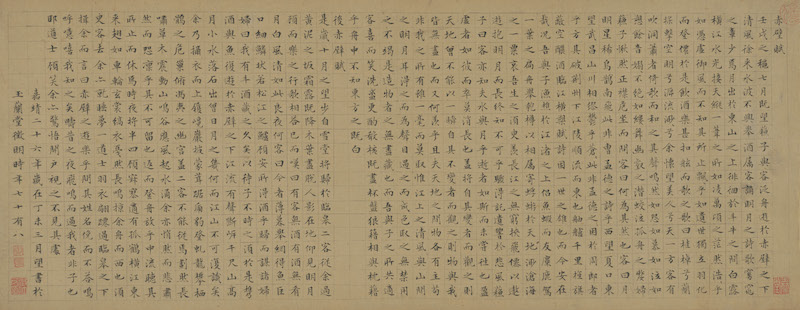 赤壁賦
壬戌之穐七月既望蘇子與客泛舟遊於赤壁之下
清風徐來水波不興舉酒屬客誦明月之詩歌窈窕
之章少焉月出於東山之上徘徊於斗牛之間白露
橫江水光接天縱一葦之所如凌萬頃之茫然浩乎
如馮虛御風而不知其所止飄乎如遺世獨立羽化
而登僊於是飲酒樂甚扣舷而歌之歌曰桂棹兮蘭
槳擊空明兮泝流光渺渺兮余懷望美人兮天一方客有
吹洞簫者倚歌而和之其聲嗚嗚然如怨如慕如泣如
訴餘音嫋嫋不絕如縷舞幽壑之潛蛟泣孤舟之嫠婦
蘇子愀然正襟危坐而問客曰何為其然也客曰月
明星稀烏鵲南飛此非曹孟德之詩乎西望夏口東
望武昌山川相繆鬱乎蒼蒼此非孟德之困於周郎者
乎方其破荊州下江陵順流而東也舳艫千里旌旗
蔽空釃酒臨江橫槊賦詩固一世之雄也而今安在
哉況吾與子漁樵於江渚之上侶魚蝦而友麋鹿駕
一葉之扁舟舉匏樽以相屬寄蜉蝣於天地渺滄海
之一粟哀吾生之須臾羨長江之無窮挾飛僊以遨
遊抱明月而長終知不可乎驟得託遺響於悲風蘇
子曰客亦知夫水與月乎逝者如斯而未嘗往也盈
虛者如彼而卒莫消長也蓋將自其變者而觀之則
天地曾不能以一瞬自其不變者而觀之則物與我
皆無盡也而又何羨乎且夫天地之間物各有主苟
非我之所有雖一毫而莫取惟江上之清風與山間
之明月耳得之而為聲目遇之而成色取之無禁用
之不竭是造物者之無盡藏也而吾與子之所共適
客喜而笑洗盞更酌肴核既盡杯盤狼藉相與枕藉
乎舟中不知東方之既白
後赤壁賦
是歲十月之望步自雪堂將歸於臨皋二客從余過
黃泥之坂霜露既降木葉盡脫人影在地仰見明月
顧而樂之行歌相答已而嘆曰有客無酒有酒無肴
月白風清如此良夜何客曰今者薄暮舉網得魚巨
口細鱗狀若松江之鱸顧安所得酒乎歸而謀諸婦
婦曰我有斗酒藏之久矣以待子不時之須於是攜
酒與魚復遊於赤壁之下江流有聲斷岸千尺山高
月小水落石出曾日月之幾何而江山不可復識矣
余乃攝衣而上履巉巖披蒙茸踞虎豹登虬龍攀栖
鶻之危巢俯馮夷之幽宮蓋二客不能從焉劃然長
嘯草木震動山鳴谷應風起水涌余亦悄然而悲肅
然而恐凜乎其不可留也返而登舟放乎中流聽其
所止而休焉時夜將半四顧寂寥適有孤鶴橫江東
來翅如車輪玄裳縞衣戛然長鳴掠余舟而西也須
臾客去余亦就睡夢一道士羽衣翩躚過臨皋之下
揖余而言曰赤壁之遊樂乎問其姓名俛而不答嗚
呼噫嘻我知之矣疇昔之夜飛鳴而過我者非子也
耶道士顧笑余亦驚悟開戶視之不見其處
嘉靖二十六年歲在丁未三月望書於
玉蘭堂徵明時年七十有八